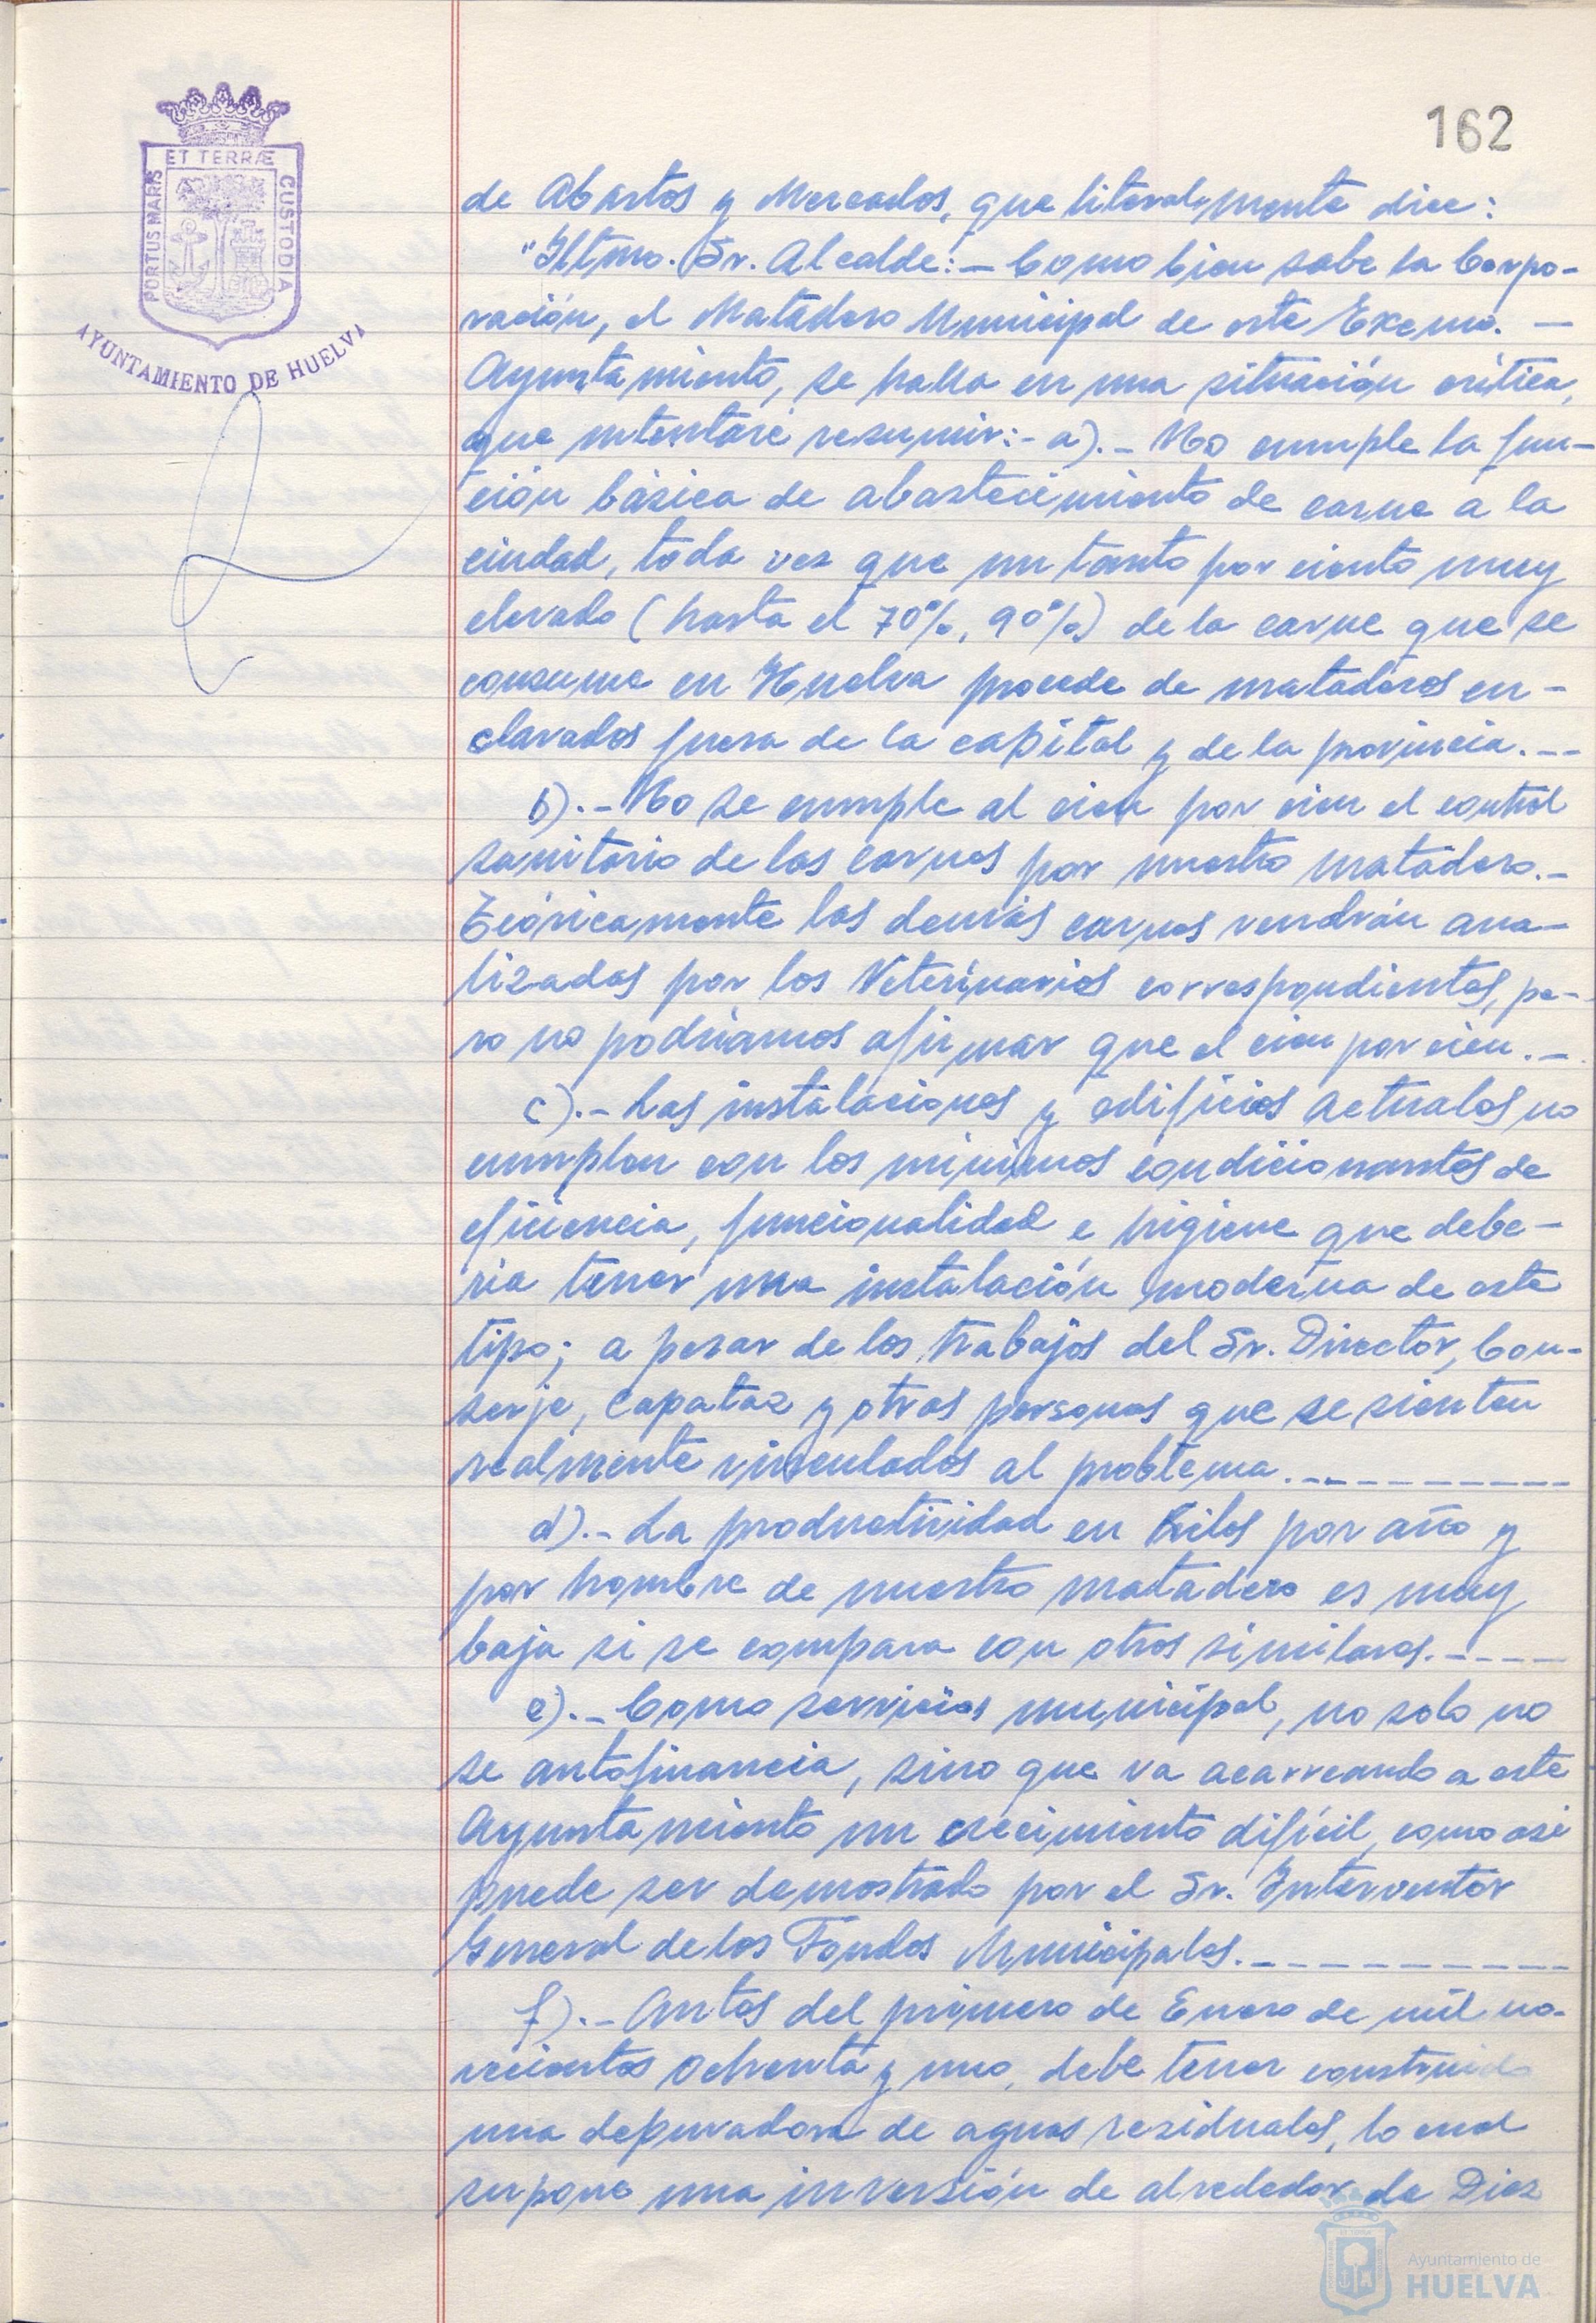 162
ET TERRÆ
PORTUS MARIS
CUSTODIA
AYUNTAMIENTO DE HUELVA
de Abastos y Mercados, que literalmente dice:
"Iltmo. Sr. Alcalde:- Como bien sabe la Corpo-
ración, el Matadero Municipal de este Excmo. -
Ayuntamiento, se halla en una situación crítica,
que intentaré resumir:- a).- No cumple la fun-
ción básica de abastecimiento de carne a la
ciudad, toda vez que un tanto por ciento muy
elevado (hasta el 70%, 90%) de la carne que se
consume en Huelva procede de mataderos en-
clavados fuera de la capital y de la provincia.--
b).- No se cumple al cien por cien el control
sanitario de las carnes por nuestro matadero.-
Teóricamente las demás carnes vendrán ana-
lizadas por los Veterinarios correspondientes, pe-
ro no podríamos afirmar que el cien por cien.-
c).- Las instalaciones y edificios actuales no
cumplen con los mínimos condicionantes de
eficiencia, funcionalidad e higiene que debe-
ría tener una instalación moderna de este
tipo; a pesar de los trabajos del Sr. Director, Con-
serje, Capataz y otras personas que se sienten
realmente vinculados al problema.----------
d).- La productividad en Kilos por año y
por hombre de nuestro matadero es muy
baja si se compara con otros similares.-----
e).- Como servicios municipal, no solo no
se autofinancia, sino que va acarreando a este
Ayuntamiento un crecimiento difícil, como así
puede ser demostrado por el Sr. Interventor
General de los Fondos Municipales.----------
f).- Antes del primero de Enero de mil no-
vecientos ochenta y uno, debe tener construido
una depuradora de aguas residuales, lo cual
supone una inversión de alrededor de Diez
Ayuntamiento de
HUELVA